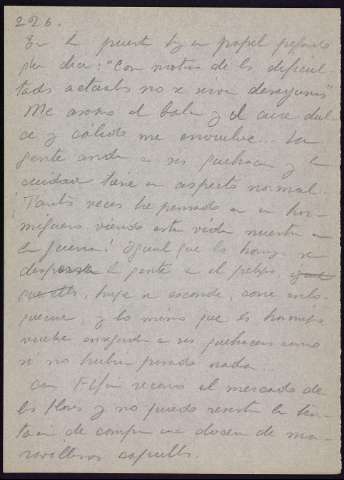 226.
En la puerta hay un papel pegado
que dice: "Con motivo de las dificul-
tades actuales no se sirven desayunos"
Me asomo al balcón y el aire dul-
ce y cálido me envuelve... La
gente anda a sus quehaceres y la
ciudad tiene un aspecto normal.
¡Tantas veces he pensado en un hor-
miguero viendo esta vida nuestra en
la guerra! Igual que las hormigas se
dispersa la gente en el peligro,
huye, se esconde, corre
y lo mismo que las hormigas
vuelve enseguida a sus quehaceres como
si no hubiera pasado nada.
Con recorro el mercado de
las flores y no puedo resistir la ten-
tación de comprar una docena de ma-
ravillosos capullos.